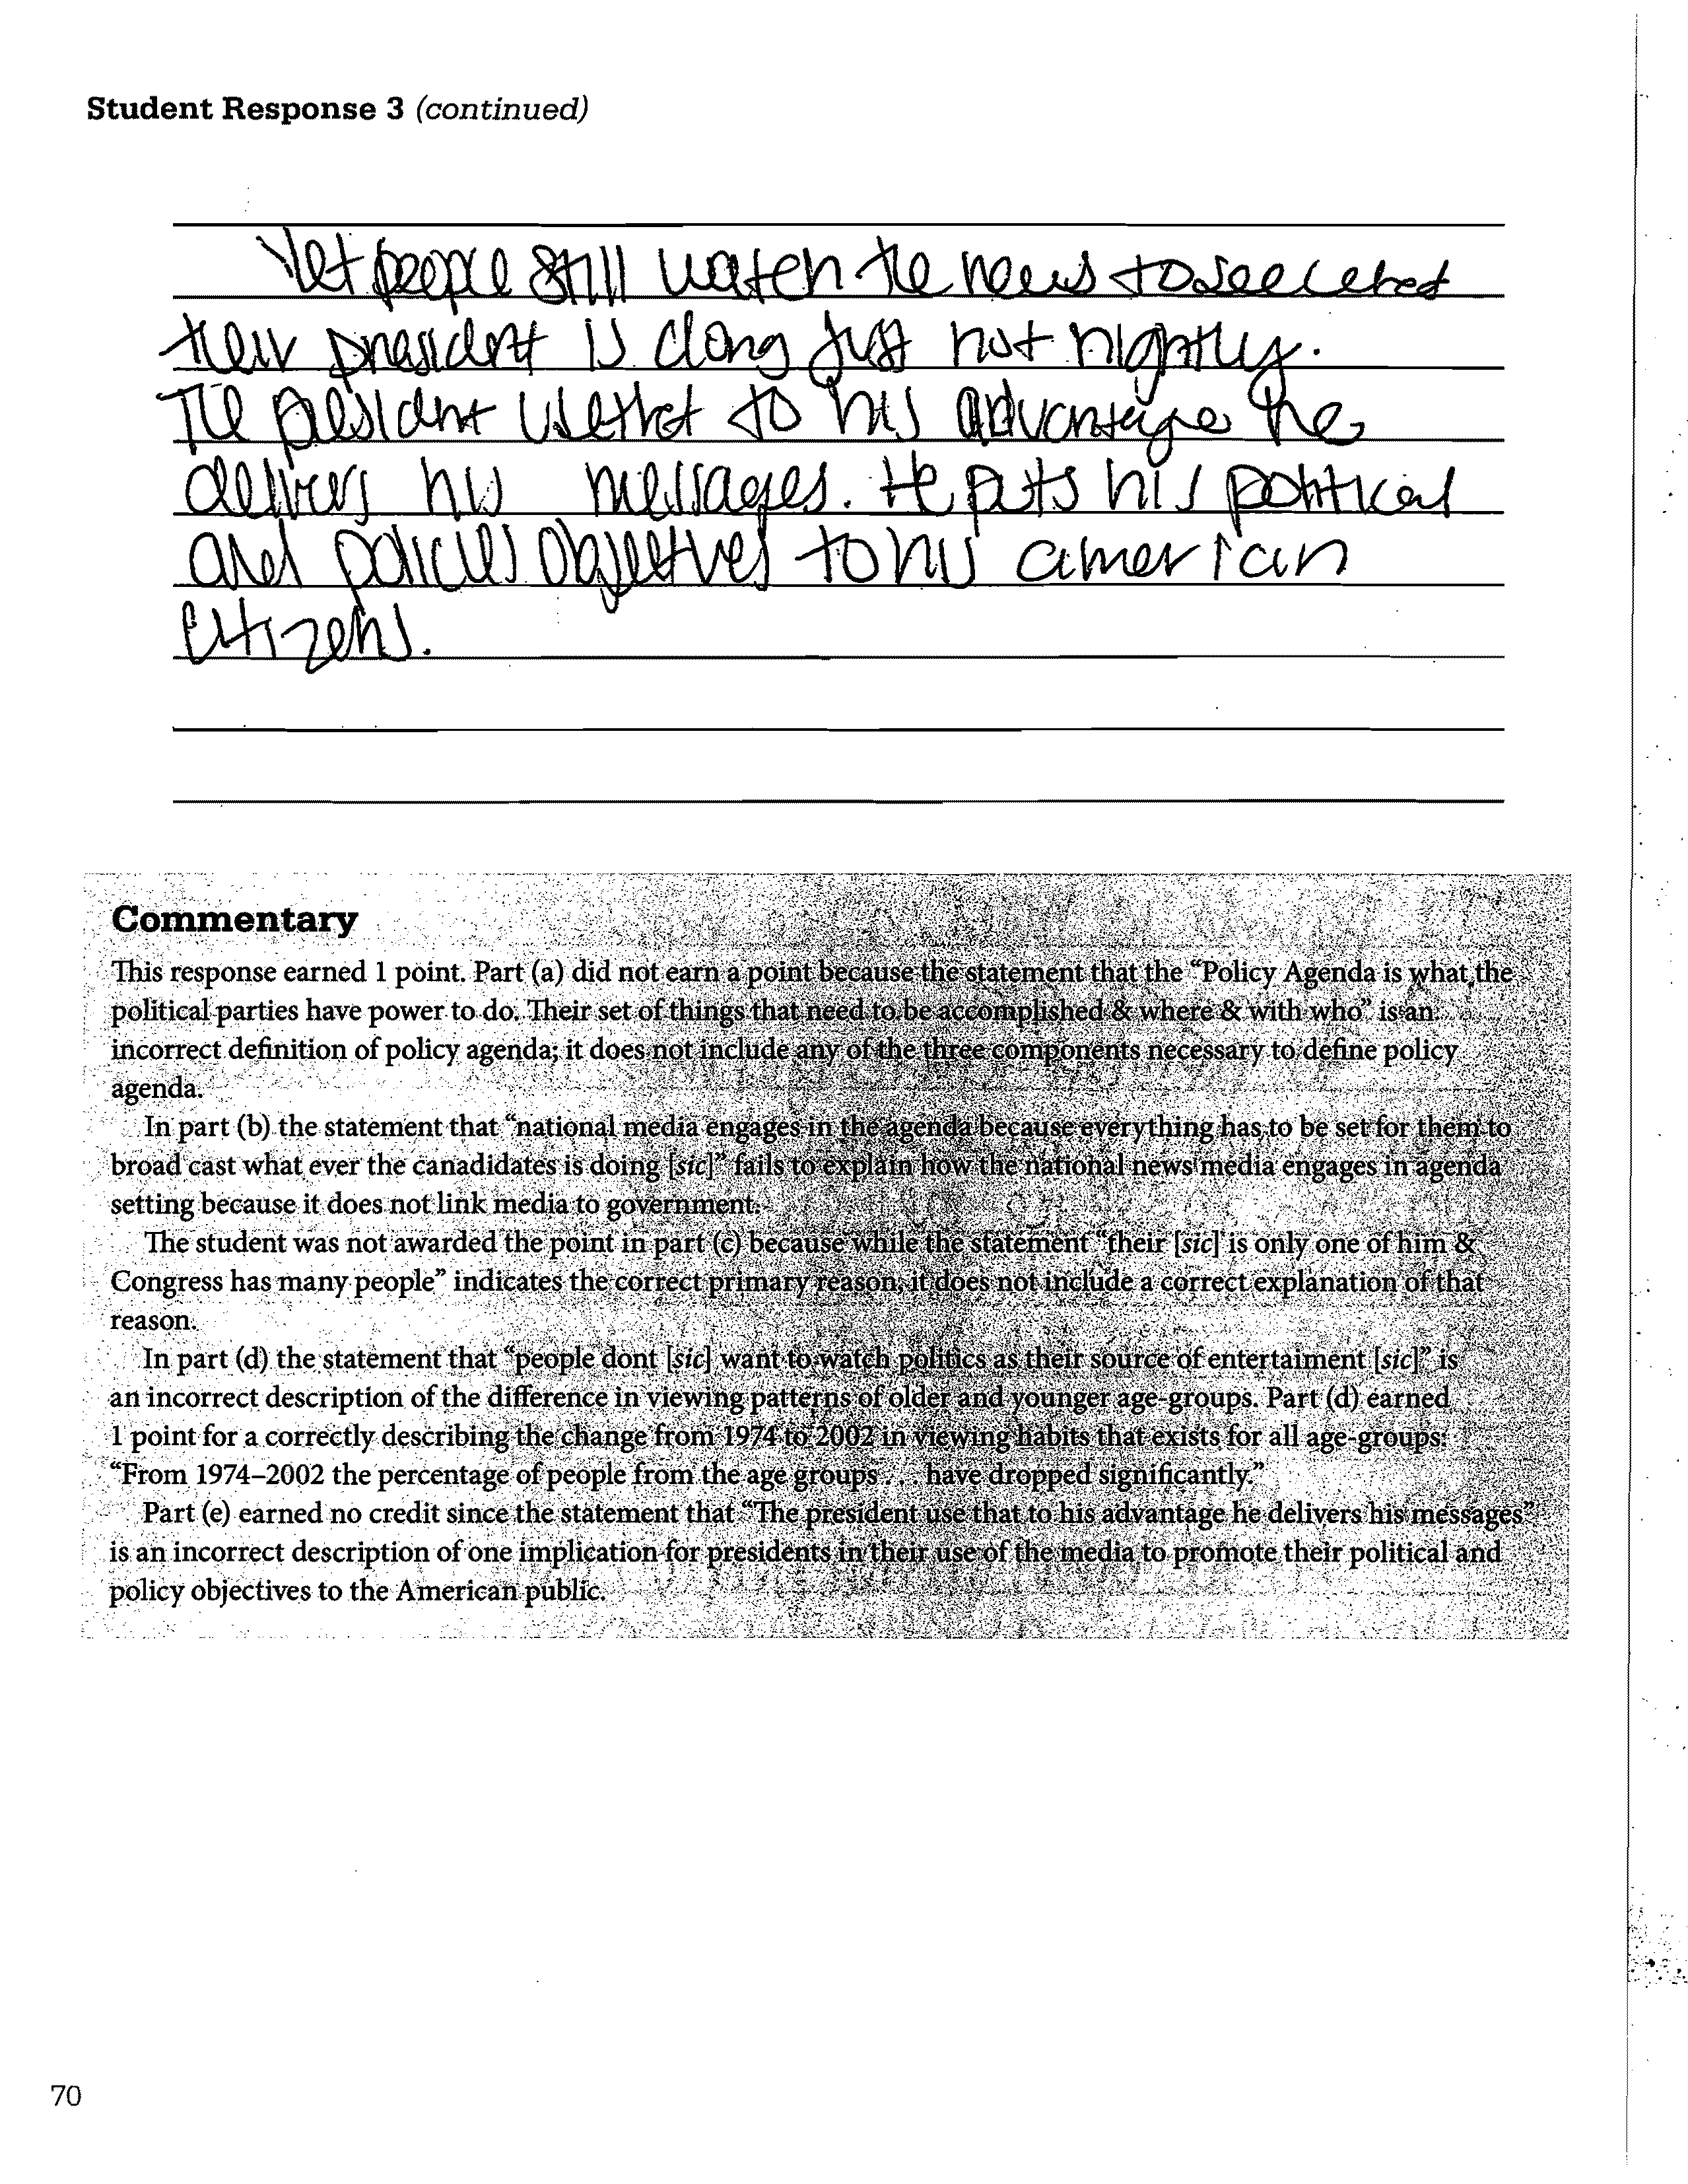 Student Response 3 (continued)
Yet people still watch the news to see
their president is doing just not nightly.
The president use that to his advantage he
delivers his messages. He puts his political
and policies objectives to his american
citizens.
Commentary
This response earned 1 point. Part (a) did not earn a point because the statement that the “Policy Agenda is what the
political parties have power to do. Their set of things that need to be accomplished & where & with who” is an
incorrect definition of policy agenda; it does not include any of the three components necessary to define policy
agenda.
In part (b) the statement that “national media engages in the agenda because everything has to be set for them to
broad cast what ever the canadidates is doing [sic]” fails to explain how the national news media engages in agenda
setting because it does not link media to government.
The student was not awarded the point in part (c) because while the statement “their [sic] is only one of him &
Congress has many people” indicates the correct primary reason, it does not include a correct explanation of that
reason.
In part (d) the statement that “people dont [sic] want to watch politics as their source of entertaiment [sic]” is
an incorrect description of the difference in viewing patterns of older and younger age-groups. Part (d) earned
1 point for a correctly describing the change from 1974 to 2002 in viewing habits that exists for all age-groups:
“From 1974–2002 the percentage of people from the age groups . . . have dropped significantly.”
Part (e) earned no credit since the statement that “The president use that to his advantage he delivers his messages”
is an incorrect description of one implication for presidents in their use of the media to promote their political and
policy objectives to the American public.
70